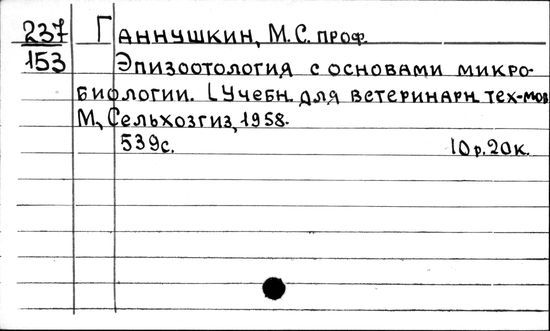 237 Ганнушкин, М.С. проф.
153 Эпизоотология с основами микро-
биологии. [Учебн. для ветеринарн. тех-мов
М., Сельхозгиз, 1958.
539с. 10р.20к.